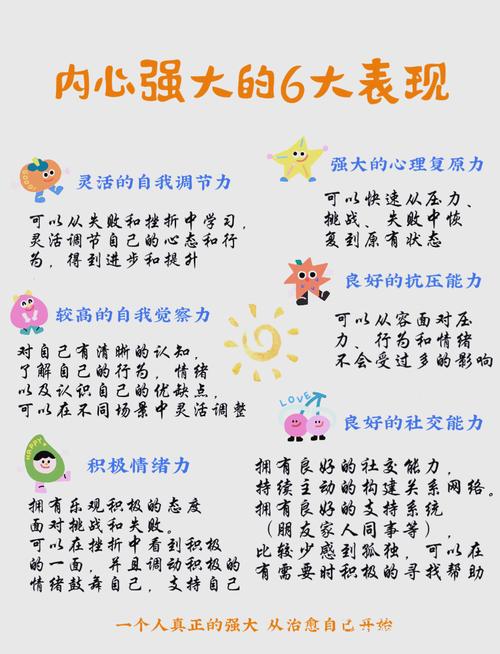 内心强大的6大表现
灵活的自我调节力
可以从失败和挫折中学习,
灵活调节自己的心态和行
为,得到进步和提升
强大的心理复原力
可以快速从压力、
挑战、失败中恢
复到原有状态
较高的自我觉察力
对自己有清晰的认知,
了解自己的行为,情绪
以及认识自己的优缺点,
可以在不同场景中灵活调整
良好的抗压能力
可以从容面对压
力、行为和情绪
不会受过多的影响
HAPPY
积极情绪力
拥有乐观积极的态度
面对挑战和失败。
可以在挫折中看到积极
的一面,并且调动积极的
情绪鼓舞自己,支持自己
LOVE
良好的社交能力
拥有良好的社交能力,
持续主动的构建关系网络。
拥有良好的支持系统
(朋友家人同事等),
比较少感到孤独,可以在
有需要时积极的寻找帮助
一个人真正的强大 从治愈自己开始